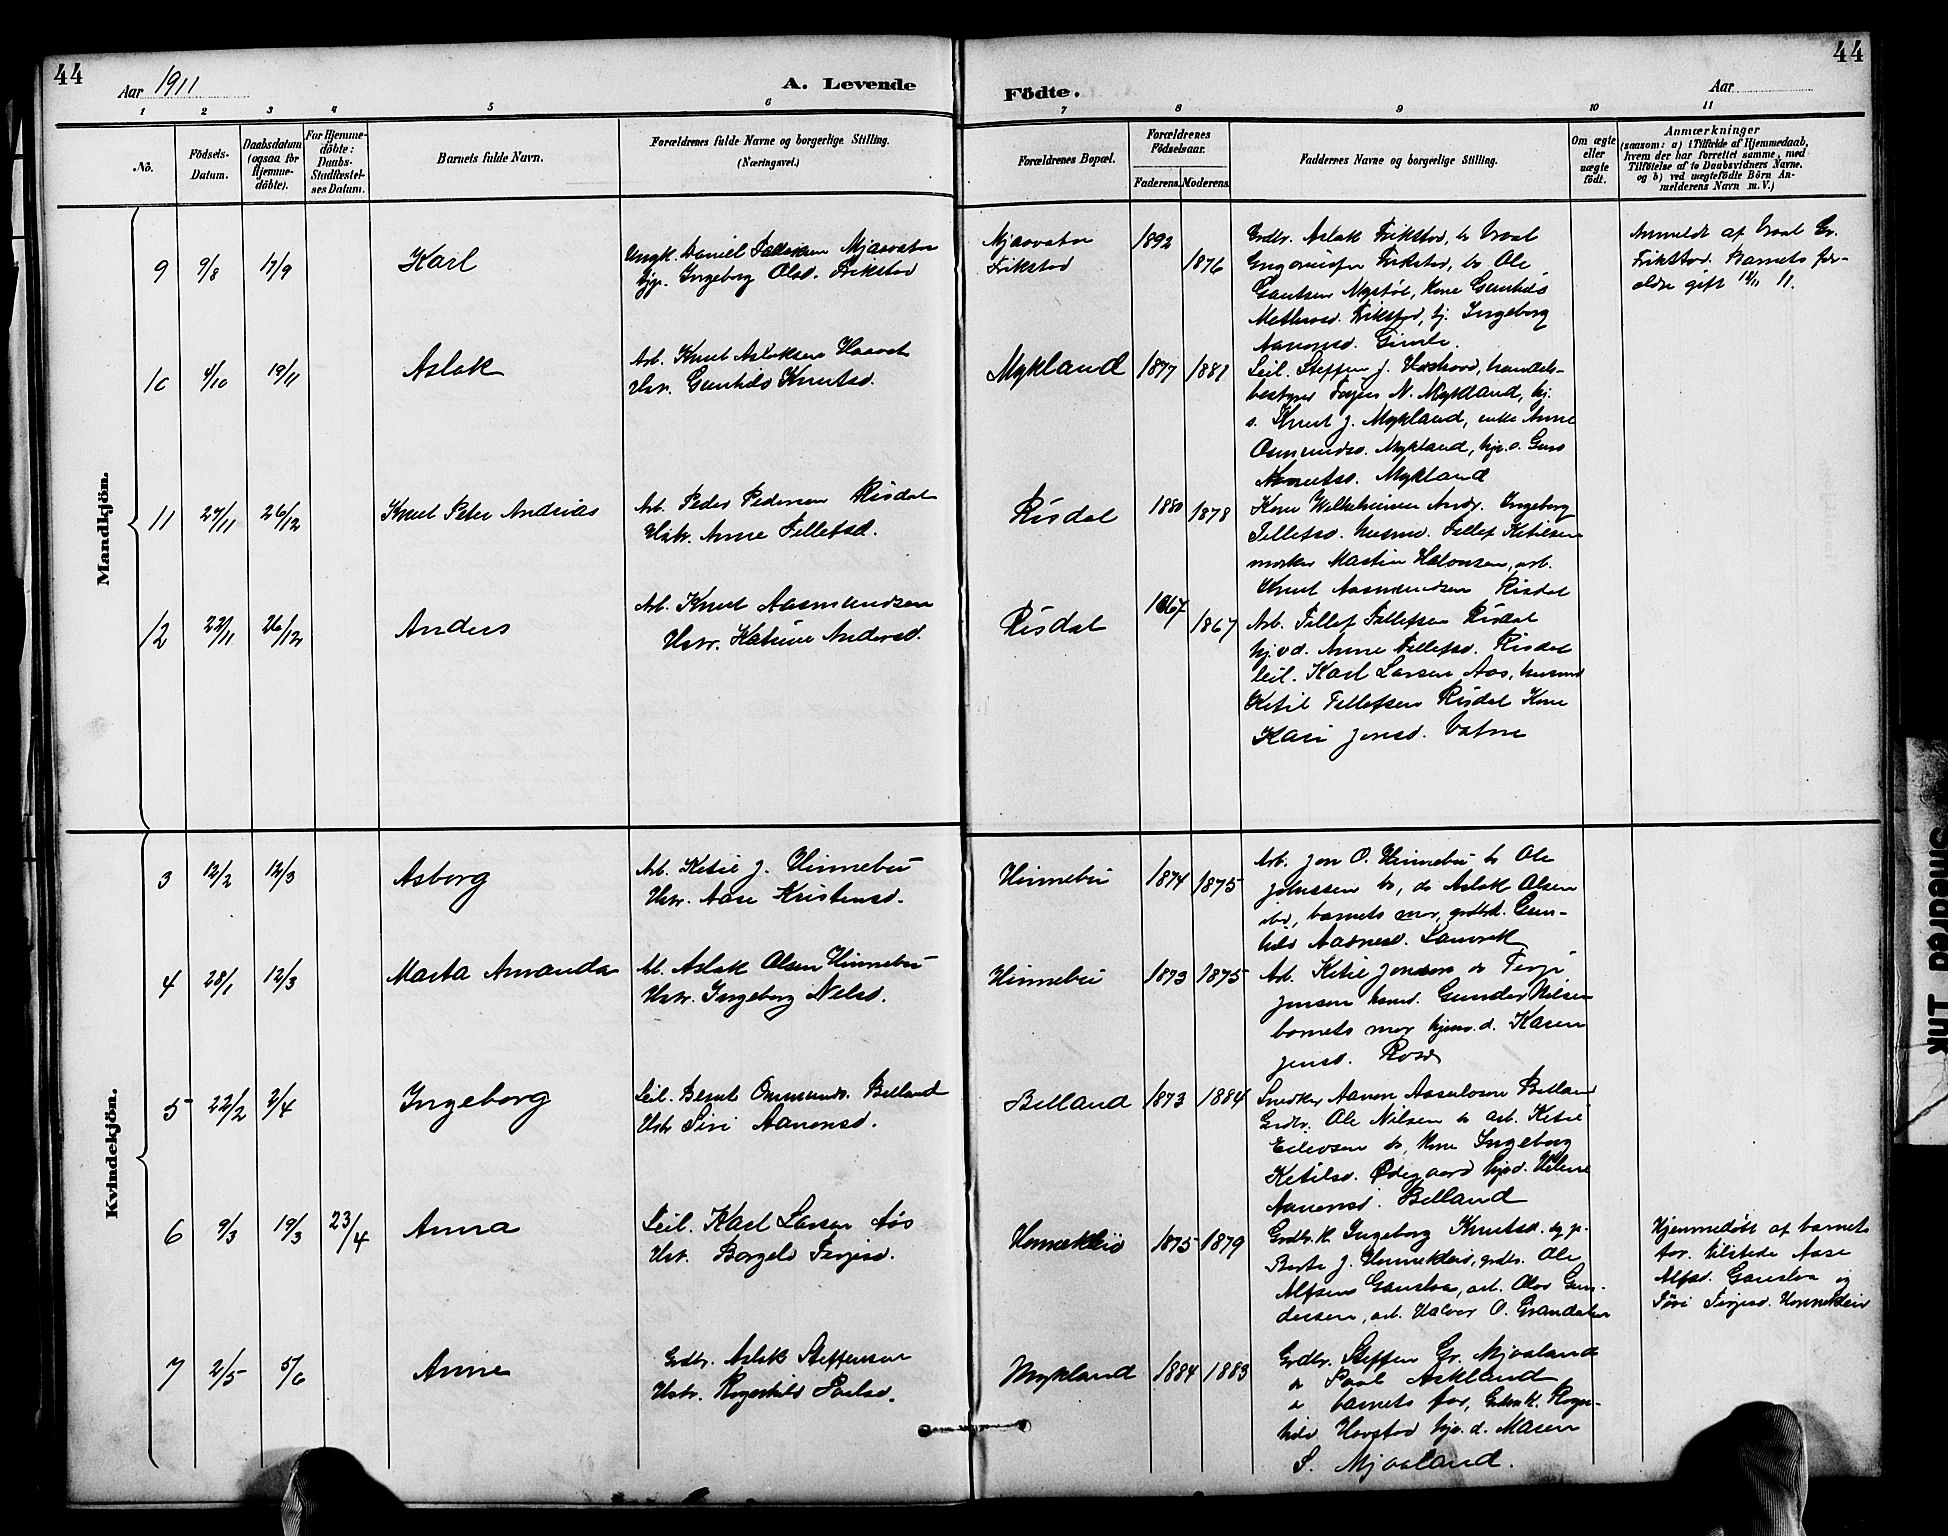 44
Aar 1911
A. Levende
Födte.
Aar
44
1 2 3 4 5 6 7 8 9 10 11
No.
Födsels-
Datum.
Daabsdatum
(ogsaa for
Hjemme-
döbte).
For Hjemme-
döbte:
Daabs-
Stadfæstel-
ses Datum.
Barnets fulde Navn.
Forældrenes fulde Navne og borgerlige Stilling.
(Næringsvei.)
Forældrenes Bopæl.
Forældrenes
Födselsaar.
Faderens. Moderens.
Faddernes Navne og borgerlige Stilling.
Om ægte
eller
uægte
födt.
Anmærkninger
(saasom: a) i Tilfælde af Hjemmedaab,
hvem der har forrettet samme, med
Tilföielse af to Daabsvidners Navne,
og b) ved uægtefödte Börn An-
melderens Navn m. V.)
Mandkjön.
9 9/8 17/9 Karl
Ungk. Daniel Mjaavatn
Ingeborg Olsd. Frikstad
Mjaavatn
Frikstad
1892
1876
Grdbr. Aslak Frikstad, do
Frikstad, do Ole
Gautsen Mystøl, Kone Gunhild
Frikstad, Ingeborg
Aanonsd. Gimle.
Anmeldt af
Frikstad. Barnets for-
ældre gift 12/11 11.
10 4/10 19/11 Aslak
Arb. Knut Aslaksen
Hstr. Gunhild Knutsd.
Mykland 1877 1881
Leil. Steffen J. handels-
bestyrer Terjer N. Mykland, hj.
s. Knut J. Mykland, enke Anne
Osmundsd. Mykland, hjv. d.
Knutsd. Mykland
11 27/11 26/12 Knut Peter Andreas
Arb. Peder Pedersen Risdal
Hstr. Anne Tellefsd.
Risdal 1880 1878
Kone Ingeborg
Tellefsd. husmd. Tellef Ketilsen
Martin arb.
Knut Aasmundsen Risdal
12 22/11 26/12 Anders
Arb. Knut Aasmundsen
Hstr. Katrine Andersd.
Risdal 1867 1867
Arb. Tellef Tellefsen Risdal
hj. v d. Anne Tellefsd. Risdal
leil. Karl Larsen Aas, husmd
Ketil Tellefsen Risdal Kone
Kari Jonsd. Vatne
Kvindekjön.
3 12/2 12/3 Asborg
Arb. Ketil J. Hinnebu
Hstr. Aase Kristensd.
Hinnebu 1874 1875
Arb. Jon O. Hinnebu do Ole
Johnssen do, do Aslak Olsen
ibd, barnets mor, grdbrd. Gun-
hild Aasnesd.
4 28/1 12/3 Marta Amanda
Ab. Aslak Olsen Hinnebu
Hstr. Ingeborg Nelsd.
Hinnebu 1873 1875
Arb. Ketil Jonsen do Terje
Jensen husmd. Gunder Nilsen
barnets mor hjemv. d. Karen
Jensd. Rosø
5 22/2 2/4 Ingeborg
Leil. Bernt Ommunds. Belland
Hstr Siri Aanonsd.
Belland 1873 1884
Snedker Aanon Belland
Grdbr. Ole Nilsen do arb. Ketil
Eilevsen do, Kone Ingeborg
Ketilsd. Ødegaard hjvd. Helene
Aanonsd. Belland
6 9/3 19/3 23/4 Anna
Leil. Karl Larsen Aas
Hst. Borgeld Terjesd.
Honnekleiv 1875 1879
Grdbr.k. Ingeborg Knutsd. og p.
Berte J. Honnekleiv, grdbr. Ole
Alfsen Ganslaa, arb. Olav Gun-
dersen, arb. Halvor O. Grandalen
Hjemmedøbt af barnets
far. tilstede Aase
Alfsd. Ganslaa og
Siri Terjesd. Honnekleiv
7 2/5 5/6 Anne
Grdbr. Aslak Steffensen
Hstr. Ragnhild Paalsd.
Mykland 1884 1883
Grdbr. Steffen Gr. Mjaaland
do Paal Askland
do barnets far, Grdm.k. Ragn-
hild Havstad hjv. d. Maren
S. Mjaaland.
Smeared Ink